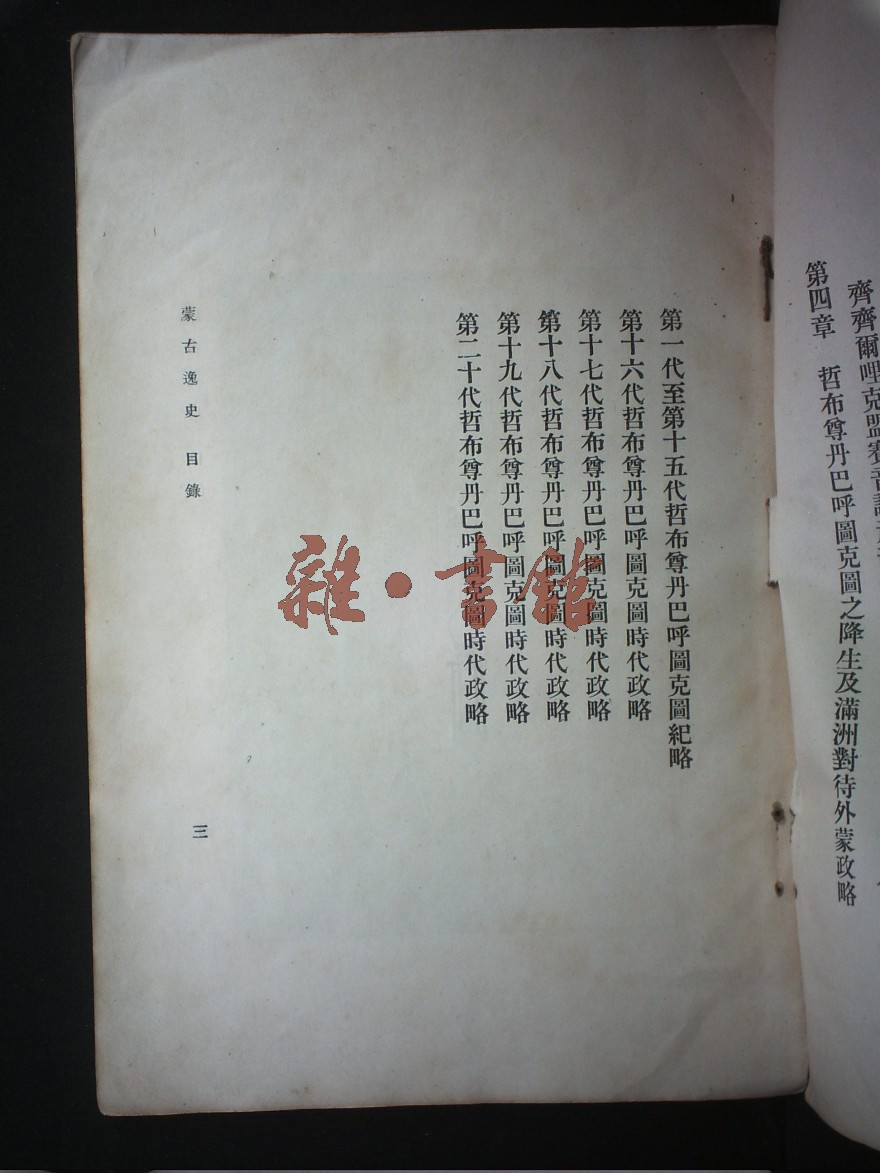 齊齊爾哩克盟賽音諾
第四章　哲布尊丹巴呼圖克圖之降生及滿洲對待外蒙政略
第一代至第十五代哲布尊丹巴呼圖克圖紀略
第十六代哲布尊丹巴呼圖克圖時代政略
第十七代哲布尊丹巴呼圖克圖時代政略
第十八代哲布尊丹巴呼圖克圖時代政略
第十九代哲布尊丹巴呼圖克圖時代政略
第二十代哲布尊丹巴呼圖克圖時代政略
蒙古逸史　目錄
三
雜·書館